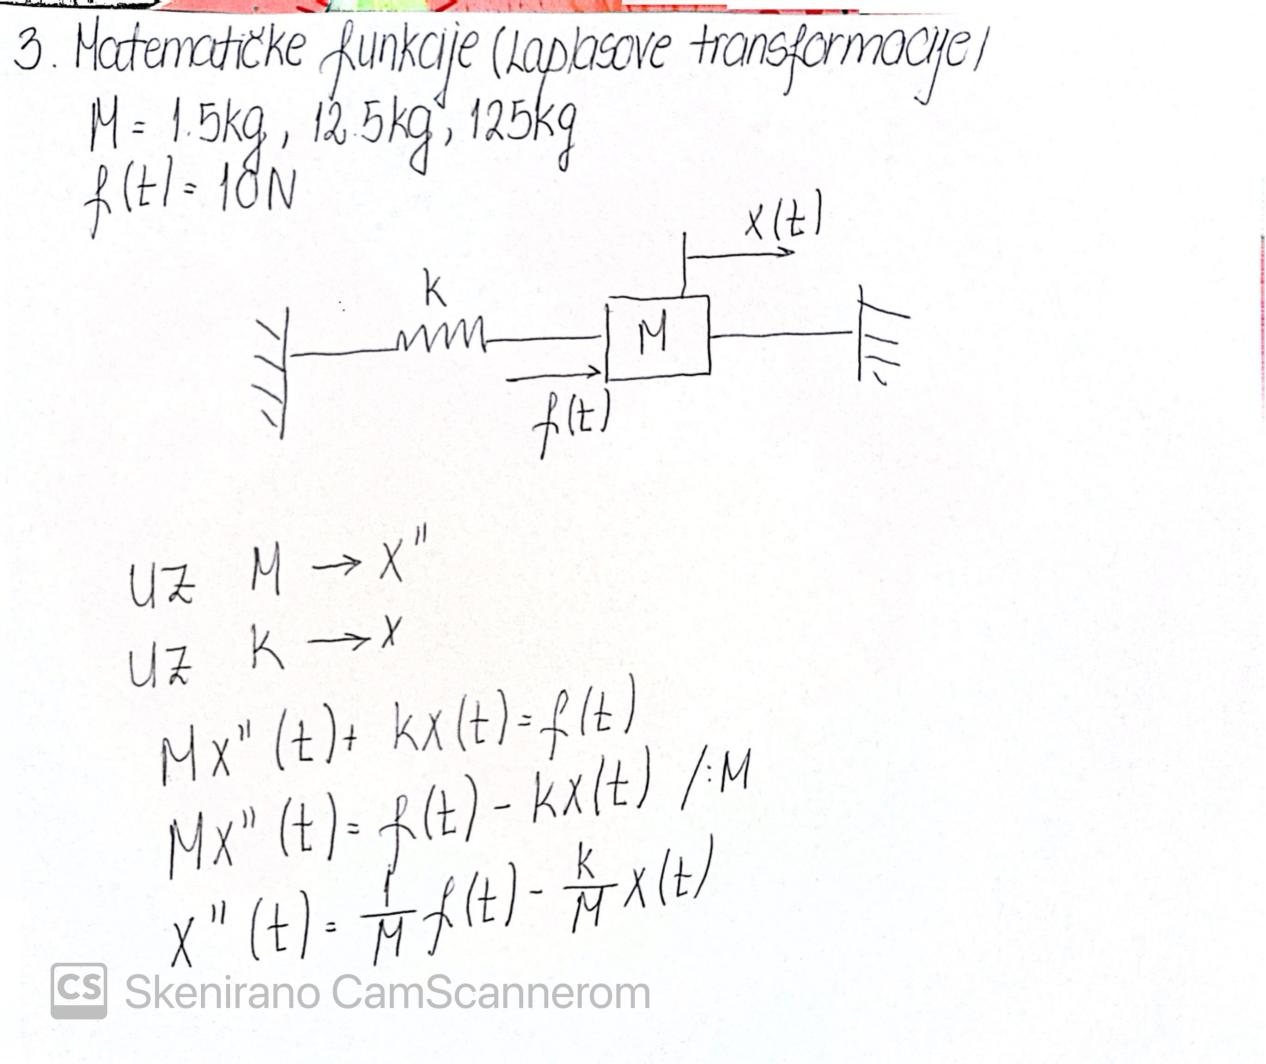 3. Matematičke funkcije (Laplasove transformacije)
M = 1.5kg, 12.5kg, 125kg
f(t) = 10N
x(t)
k
M
f(t)
UZ M → x"
UZ K → x
Mx"(t) + kx(t) = f(t)
Mx"(t) = f(t) - kx(t) /:M
x"(t) = 1/M f(t) - k/M x(t)
CS Skenirano CamScannerom